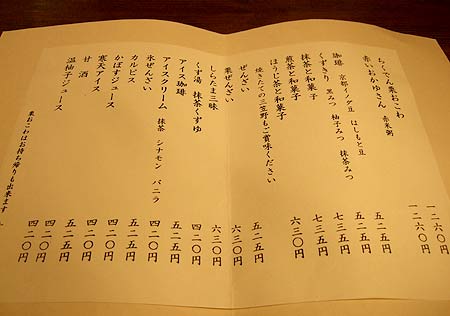 ちくでん栗おこわ 一二六〇円
赤いおかゆさん 赤米粥 一二六〇円
珈琲 京都イノダ豆 はしもと豆 五二五円
くずきり 黒みつ 柚子みつ 抹茶みつ 五二五円
抹茶と和菓子 七三五円
煎茶と和菓子 七三五円
ほうじ茶と和菓子 六三〇円
焼きたての三笠野もご賞味ください
ぜんざい 五二五円
栗ぜんざい 六三〇円
しらたま三昧 六三〇円
くず湯 抹茶くずゆ 四二〇円
アイス珈琲 五二五円
アイスクリーム 抹茶 シナモン バニラ
氷ぜんざい 五二五円
カルピス 四二〇円
かぼすジュース 四二〇円
寒天アイス 五二五円
甘酒 四二〇円
温柚子ジュース 四二〇円
栗おこわはお持ち帰りも出来ます